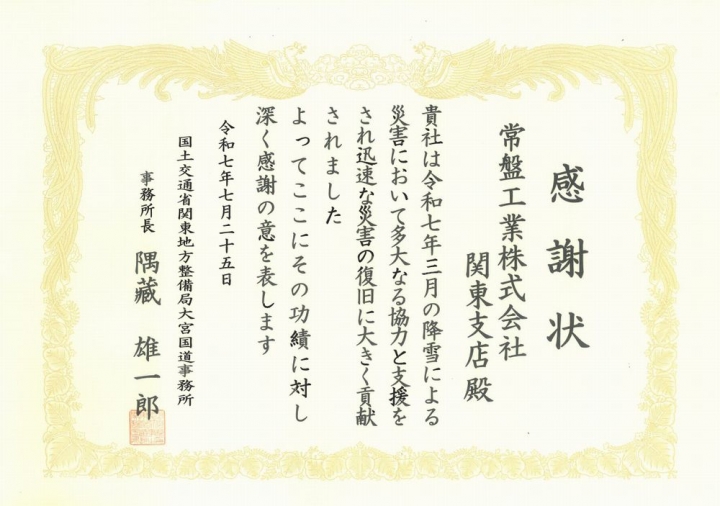 感謝状
常盤工業株式会社
関東支店殿
貴社は令和七年三月の降雪による
災害において多大なる協力と支援を
され迅速な災害の復旧に大きく貢献
されました
よってここにその功績に対し
深く感謝の意を表します
令和七年七月二十五日
国土交通省関東地方整備局大宮国道事務所
事務所長 隅藏 雄一郎